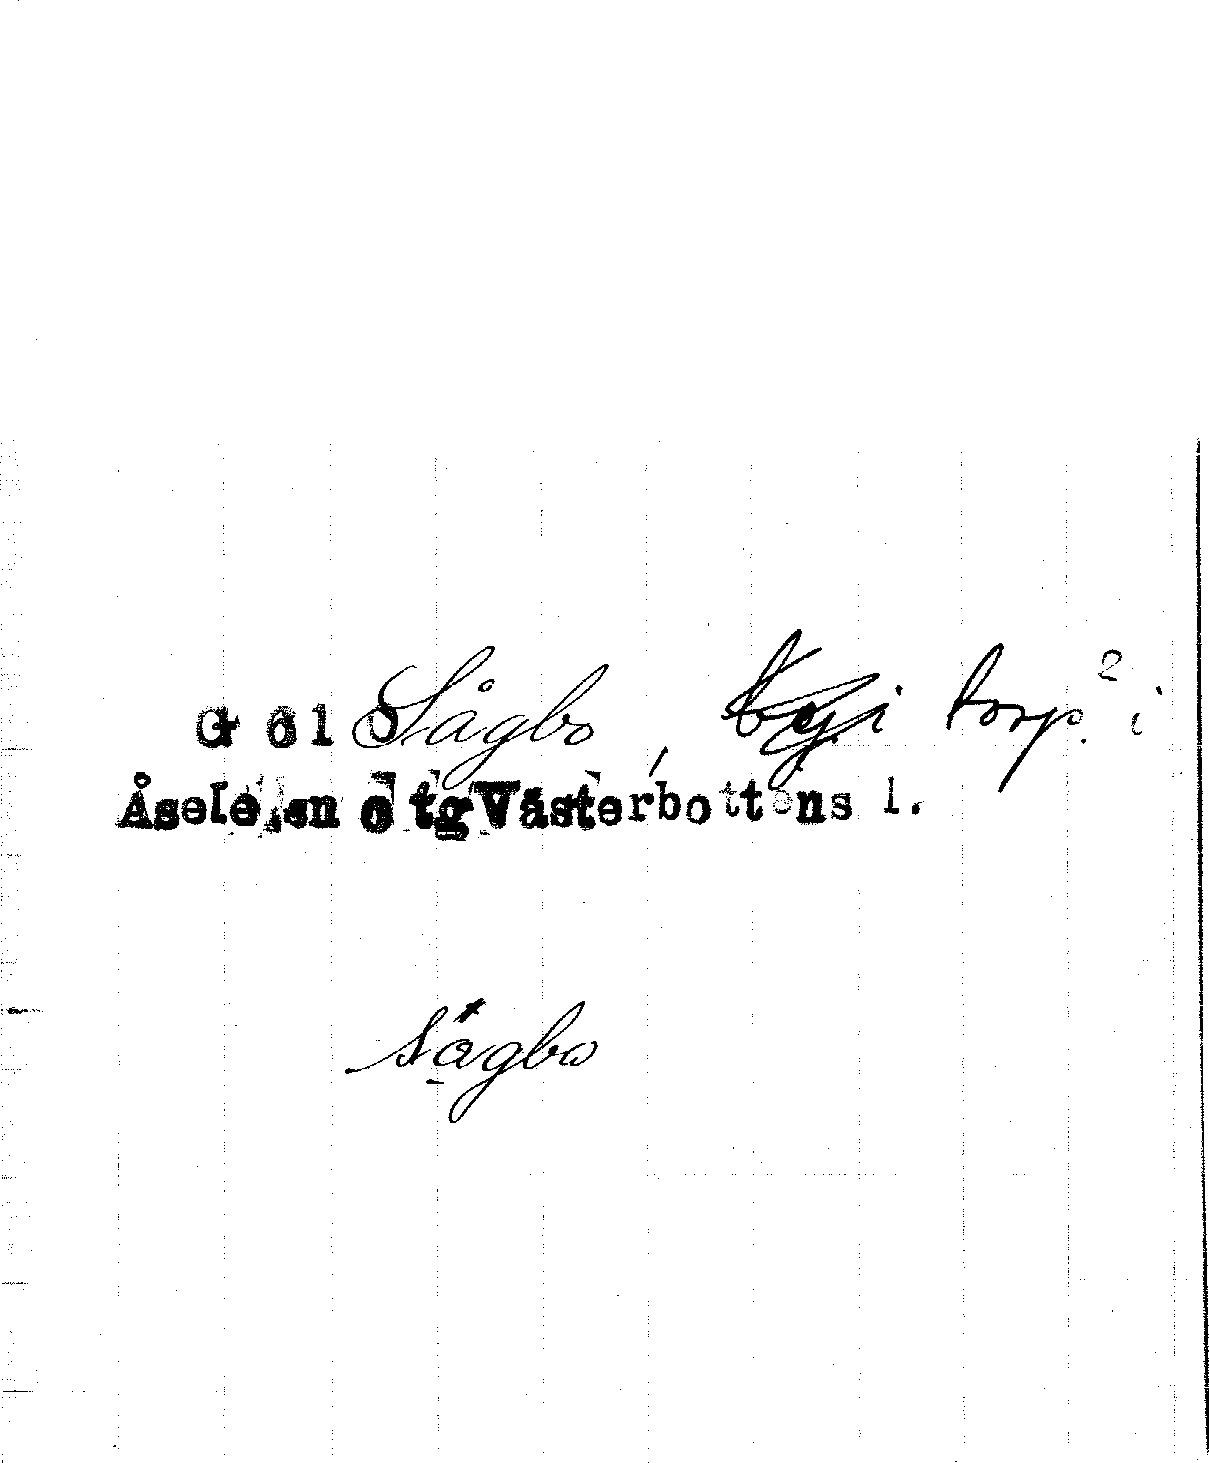 G 610 Sågbo, torp? i
Åsele sn o tg Västerbottens l.
Sågbo